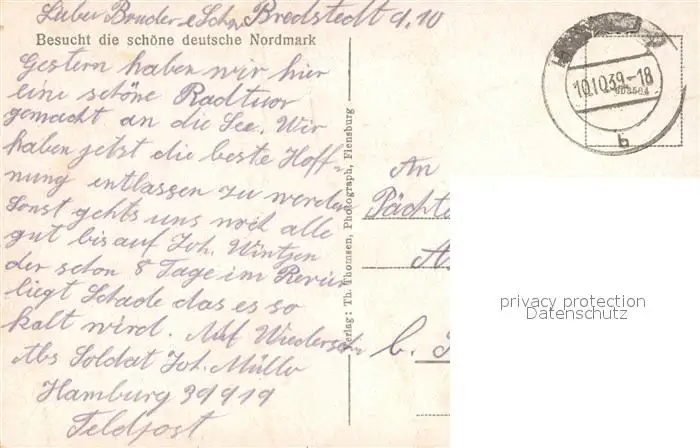 Lieber Bruder u Schw, Bredstedt d. 10
Besucht die schöne deutsche Nordmark
Gestern haben wir hier
eine schöne Radtuor
gemacht an die See. Wir
haben jetst die beste Hoff-
nung entlassen zu werden
Sonst gehts uns noch alle
gut bis auf Joh. Wintzen
der schon 8 Tage im Revier
liegt Schade das es so
kalt wird. Auf Wiedersehn
Abs Soldat Joh. Müller
Hamburg 39919
Feldpost
Verlag: Th. Thomsen, Photograph, Flensburg
10.10.39-18
b
An
Pächte
b.
privacy protection
Datenschutz